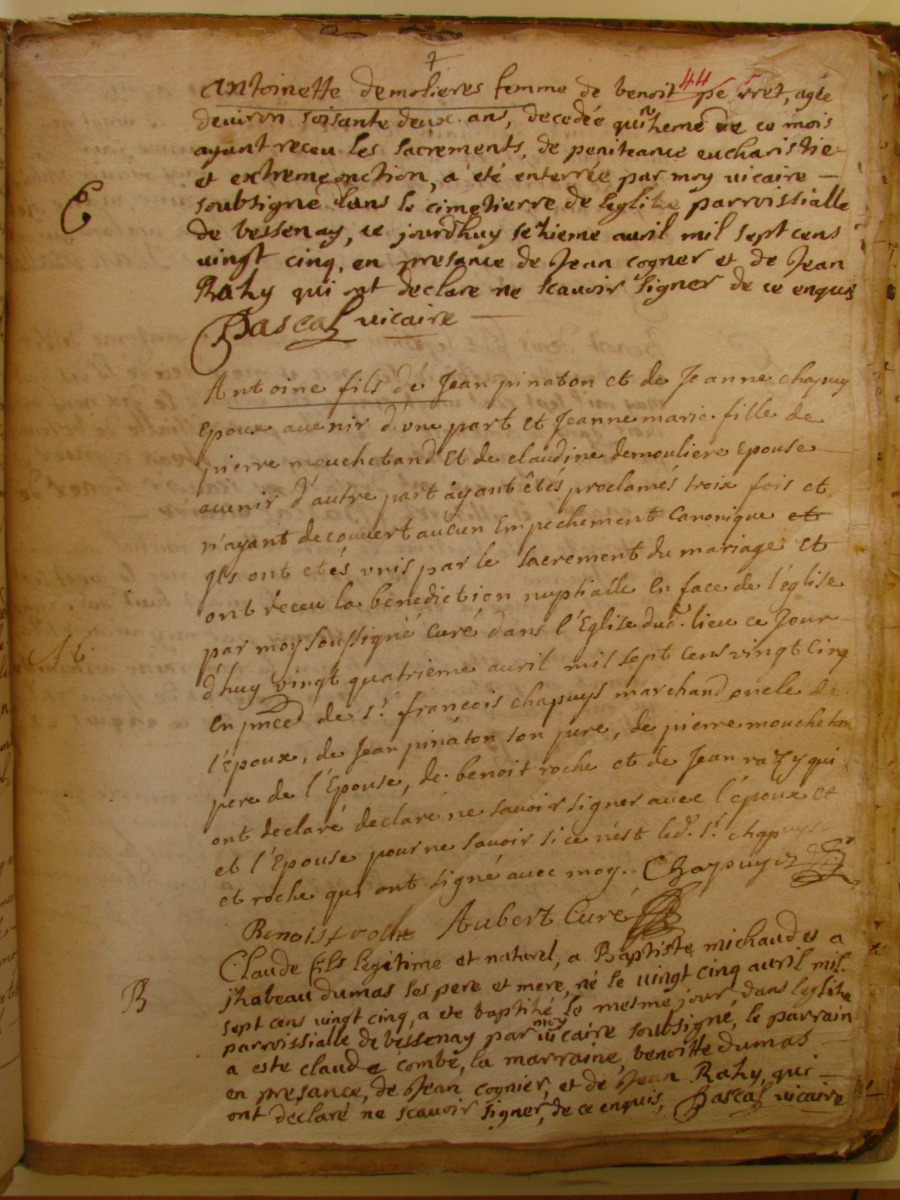 7
44
antoinette demolieres femme de benoit perret, agée
denviron soisante deux ans, decedée quinzieme de ce mois
ayant receu les sacrements, de peniteance eucharistie
et extremeonction, a été enterrée par moy vicaire
E
soubsigné dans le cimetierre de leglize parroissialle
de bessenay, ce jourdhuy sezieme auril mil sept cens
vingt cinq, en presance de Jean cogner et de Jean
Razy qui ont declare ne scauoir signer de ce enquis
Pascal vicaire
Antoine fils de Jean pinaton et de Jeanne chapuy
epoux auenir d'une part et Jeanne marie fille de
pierre mouchetand et de claudine demouliere epouse
auenir d'autre part ayant êtés proclamés trois fois et
n'ayant decouvert aucun Empechement Canonique et
qls ont etés unis par le sacrement du mariage et
ont réceu la benediction nuptialle en face de l'église
par moy soussigné Curé dans l'Eglise dud. lieu ce Jour
M
d'huy vingt quatrieme auril mil sept cens vingt Cinq
En pnced de sr. francois chapuys marchand oncle de
l'époux, de Jean pinaton son pere, de pierre moucheton
pere de l'Epouse, de benoit roche et de Jean razy qui
ont declaré declaré ne sauoir signer auec l'époux et
et l'Epouse pour ne sauoir si ce n'est led. sr. chapuys
et roche qui ont signé auec moy. Chapuys
Benoist roche Aubert Curé
Claude fils legitime et naturel, a Baptiste michaud et a
B
jzabeau dumas ses pere et mere, né le vingt cinq auril mil
sept cens vingt cinq, a ete baptizé le mesme jour, dans leglize
parroissialle de bessenay par moy vicaire soubsigné, le parrain
a este claude combe, la marraine, benoitte dumas
en presance, de Jean cognier, et de Jean Razy, qui
ont declaré ne scauoir signer, de ce enquis, Pascal vicaire